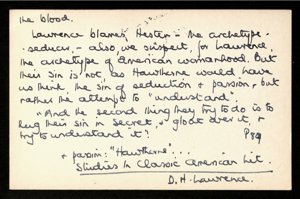 the blood.
Lawrence blames Hester – the archetype-
seducer, – also, we suspect, for Lawrence,
the archetype of American womanhood. But
their sin is not, as Hawthorne would have
us think, the sin of seduction & passion, but
rather the attempt to "understand".
"And the second thing they try do is to
hug their sin in secret, & gloat over it, &
try to understand it"? P 89
& passim: "Hawthorne"...
Studies in Classic American Lit.
D. H. Lawrence.